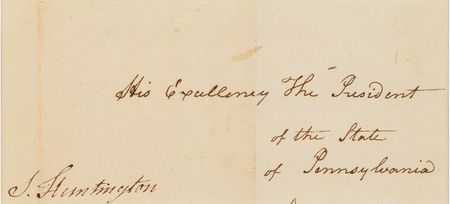 His Excellency The President
of the State
of Pennsylvania
S. Huntington